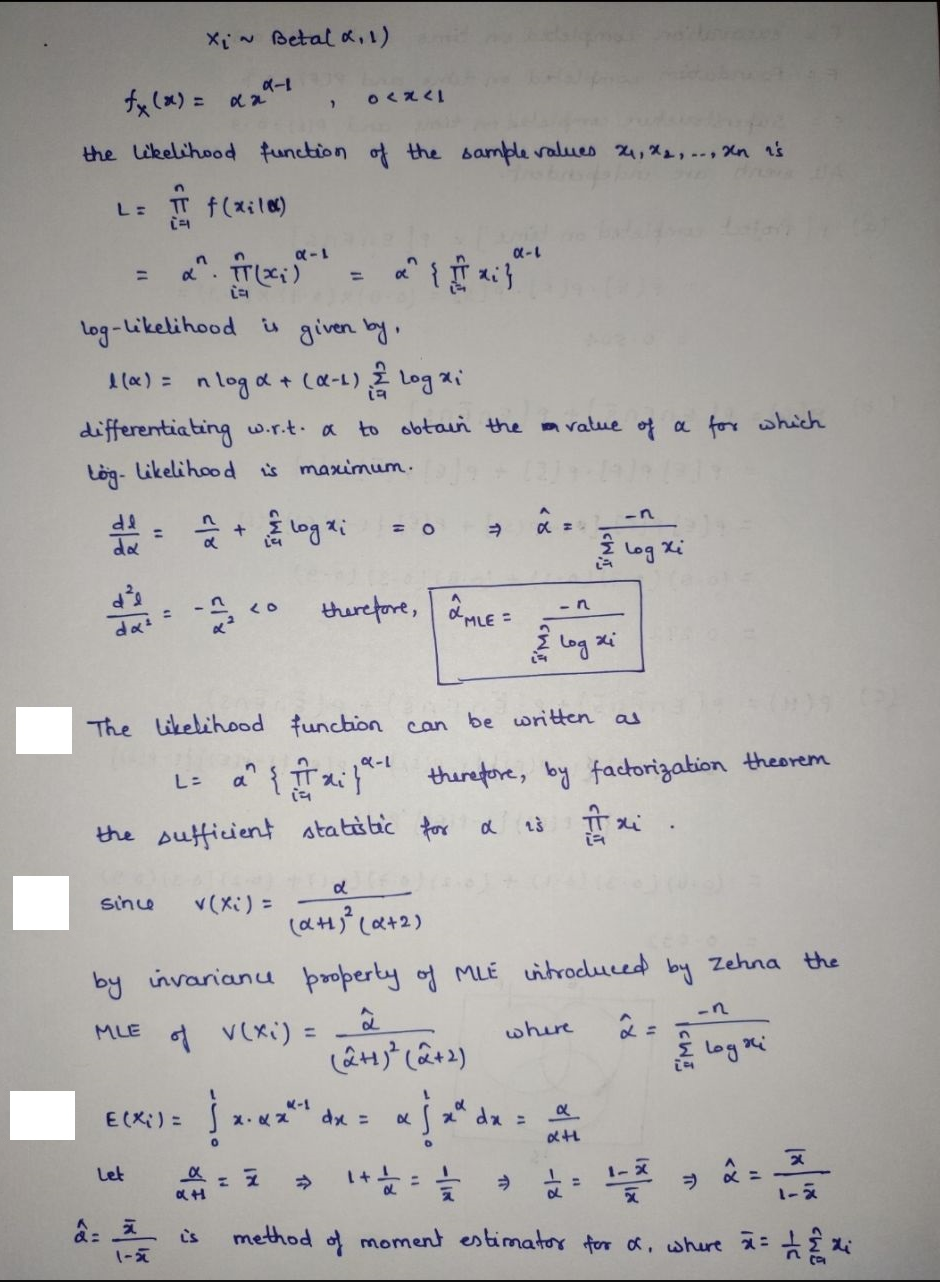 Xi ~ Beta(α,1)
fX(x) = αx^(α-1) , 0<x<1
the likelihood function of the sample values x1, x2, ..., xn is
L = ∏_{i=1}^{n} f(xi|α)
= α^n . ∏_{i=1}^{n} (xi)^(α-1) = α^n {∏_{i=1}^{n} xi}^(α-1)
log-likelihood is given by,
l(α) = n log α + (α-1) Σ_{i=1}^{n} log xi
differentiating w.r.t. α to obtain the value of α for which
log-likelihood is maximum.
dl/dα = n/α + Σ_{i=1}^{n} log xi = 0 ⇒ α̂ = -n / Σ_{i=1}^{n} log xi
d²l/dα² = -n/α² <0 therefore, α̂_MLE = -n / Σ_{i=1}^{n} log xi
The likelihood function can be written as
L = α^n {∏_{i=1}^{n} xi}^(α-1) therefore, by factorization theorem
the sufficient statistic for α is ∏_{i=1}^{n} xi .
since V(Xi) = α / (α+1)²(α+2)
by invariance property of MLE introduced by Zehna the
MLE of V(Xi) = α̂ / (α̂+1)²(α̂+2) where α̂ = -n / Σ_{i=1}^{n} log xi
E(Xi) = ∫_0^1 x.αx^(α-1) dx = α ∫_0^1 x^α dx = α/(α+1)
Let α/(α+1) = x̄ ⇒ 1+1/α = 1/x̄ ⇒ 1/α = (1-x̄)/x̄ ⇒ α̂ = x̄/(1-x̄)
α̂ = x̄/(1-x̄) is method of moment estimator for α, where x̄ = 1/n Σ_{i=1}^{n} xi